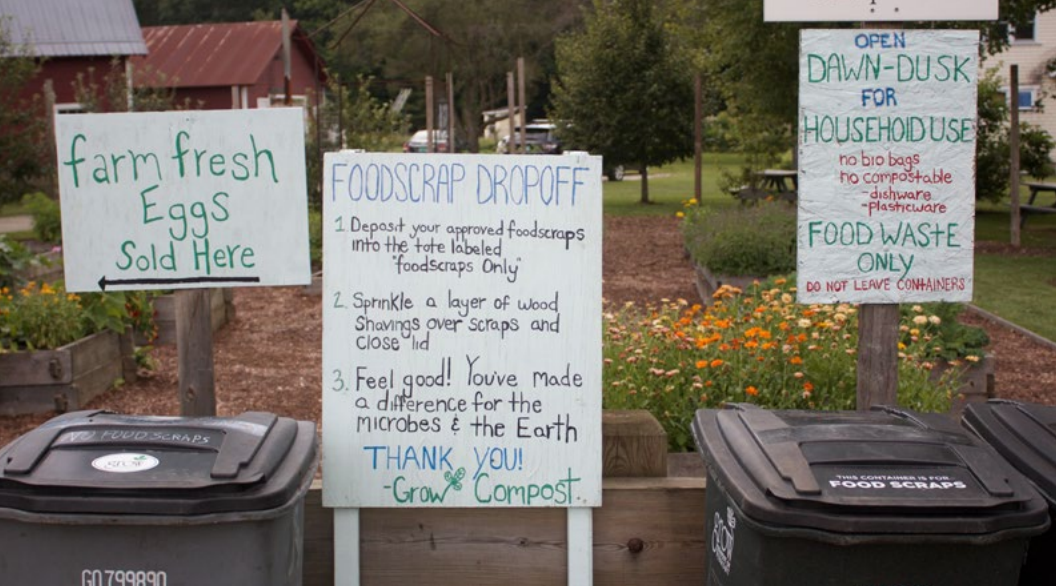 farm fresh
Eggs
Sold Here
FOODSCRAP DROPOFF
1. Deposit your approved foodscraps
into the tote labeled
"foodscraps Only"
2. Sprinkle a layer of wood
Shavings over scraps and
close lid
3. Feel good! You've made
a difference for the
microbes & the Earth
THANK YOU!
-Grow Compost.
OPEN
DAWN-DUSK
FOR
HOUSEHOLD USE
no bio bags
no compostable
-dishware
-plasticware
FOOD WASTE
ONLY
DO NOT LEAVE CONTAINERS
NO FOOD SCRAPS
GO799890
THIS CONTAINER IS FOR
FOOD SCRAPS